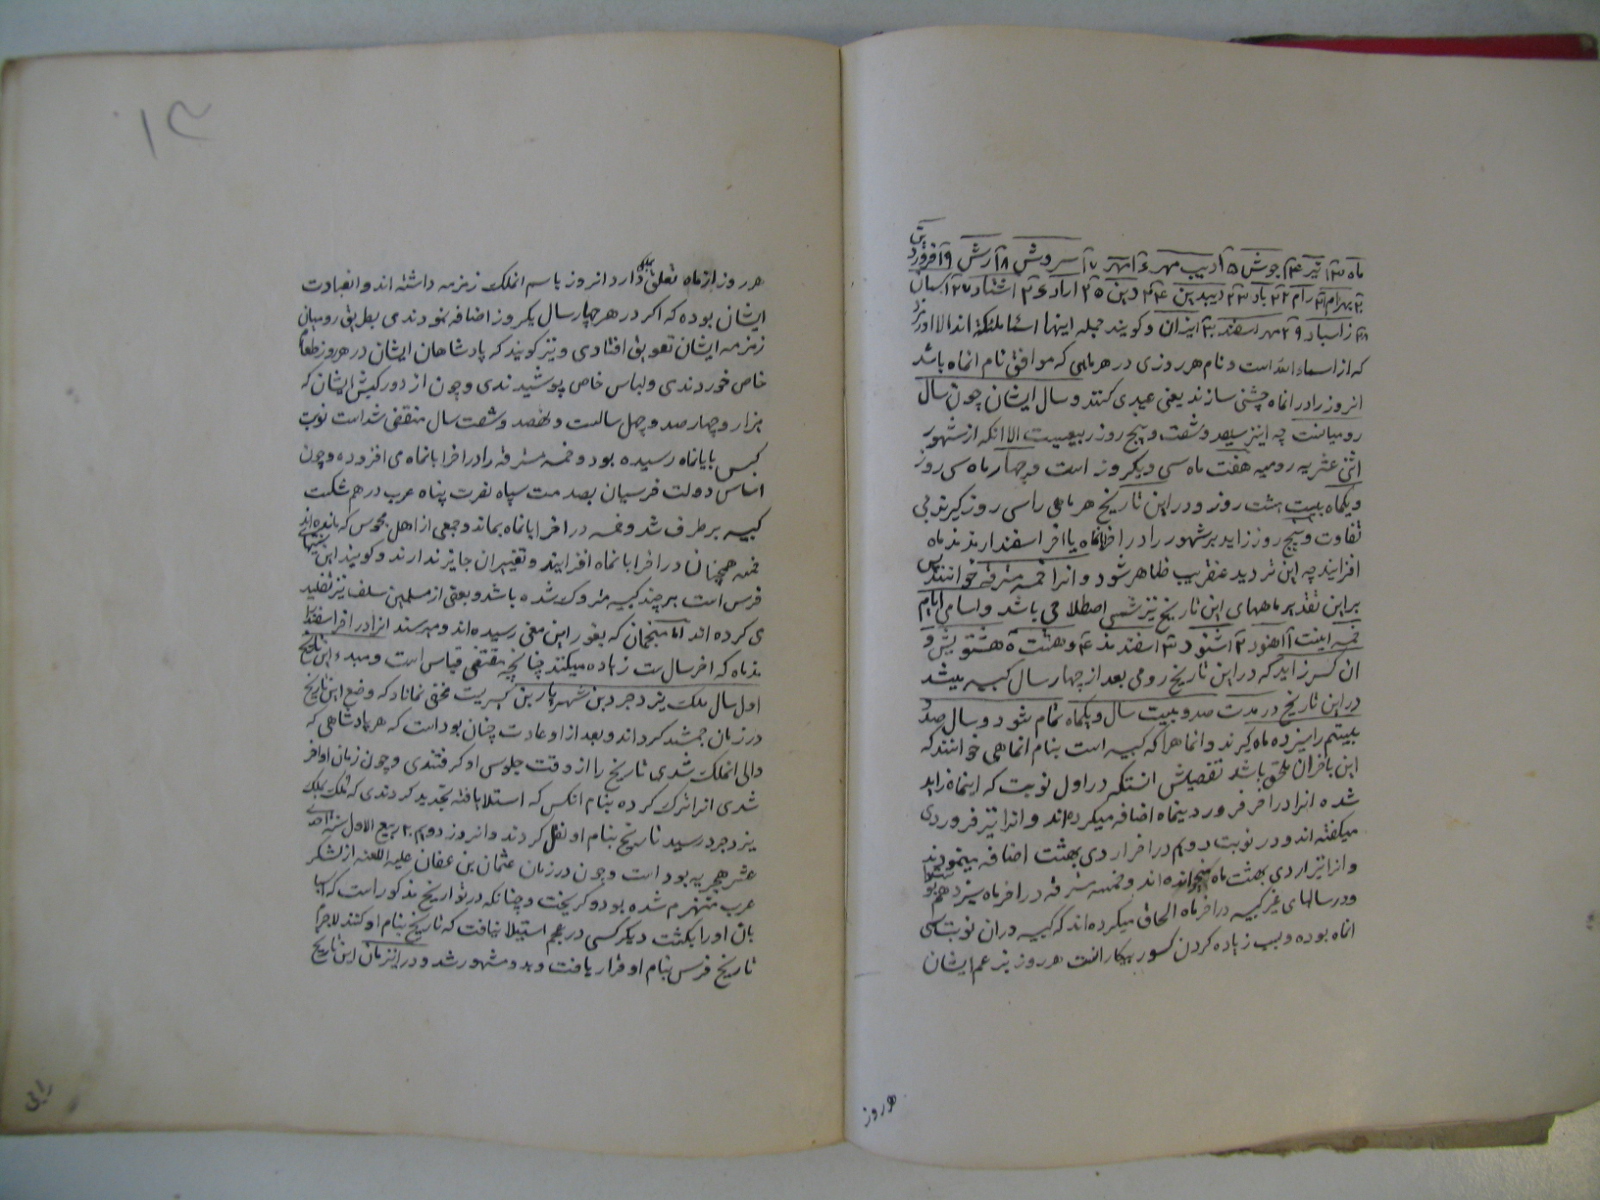 ماه ۱۳ تیر ۱۴ جوش ۱۵ دیب مهر ۱۶ مهر ۱۷ سروش ۱۸ رش ۱۹ فروردین
۲۰ بهرام ۲۱ رام ۲۲ باد ۲۳ دیبدین ۲۴ دین ۲۵ اراد ۲۶ اشتاد ۲۷ اسمان
۲۸ زامیاد ۲۹ مهر اسفند ۳۰ انیران و کویند جمله اینها اسما ملئکة اند الا اورمزد
که از اسماء الله است و نام هر روزی در هر ماهی که موافق نام انماه باشد
انروز را در انماه جشنی سازند یعنی عیدی کنند و سال ایشان چون سال
رومیانست چه اینز سیصد و شصت و پنج روز ربیعیست الا انکه از شهور
اثنی عشریه رومیه هفت ماه سی و یکروز است و چهار ماه سی روز
و یکماه بیست هشت روز و در این تاریخ هر ماهی را سی روز کیرند بی
تفاوت و پنج روز زاید بر شهور را در اخر ابانماه یا اخر اسفندارمذ ماه
افزایند چه این تردید عنقریب ظاهر شود و انرا خمسه مسترقه خوانند پس
بر این تقدیر ماههای این تاریخ نیز شمسی اصطلاحی باشد و اسامی ایام
خمسه اینست ۱ اهنود ۲ اشنود ۳ اسفند مذ ۴ وهشت ۵ هشتویش و
ان کسر زاید که در این تاریخ رومی بعد از چهار سال کبیسه میشد
در این تاریخ در مدت صد و بیست سال و یکماه تمام شود و سال صد و
بیستم را سیزده ماه کیرند و انماه را که کبیسه است بنام انماهی خوانند که
این باخر ان ملحق باشد تفصیلش انستکه در اول نوبت که اینماه زاید
شده انرا در اخر فروردینماه اضافه میکرده‌اند و انرا نیز فروردی
میکفته اند و در نوبت دویم در اخر اردی بهشت اضافه مینمودند
و انرا نیز اردی بهشت ماه میخوانده اند و خمسه مسترقه در اخر ماه سیزدهم
و در سالهای غیر کبیسه در اخر ماه الحاق میکرده‌اند که کبیسه در ان نوبت
انماه بوده و سبب زیاده کردن کسور بیکار انست هر روز بزعم ایشان
هر روز
۱۲
هر روز از ماه تعلق بملکی دارد انروز باسم انملک زمزمه داشته اند و انعبادت
ایشان بوده که اکر در هر چهار سال یکروز اضافه نمودندی بطریق رومیان
زمزمه ایشان تعویق افتادی و نیز کویند که پادشاهان ایشان در هر روز طعام
خاص خوردندی و لباس خاص پوشیدندی و چون از دور کبیس ایشان که
هزار و چهار صد و چهل سالست و نهصد و شصت سال منقضی شد است نوبت
کبس بابانماه رسیده بود و خمسه مسترقه را در اخر ابانماه می افزوده و چون
اساس دولت فرسیان بصدمت سپاه نصرت پناه عرب در هم شکست
کبیسه بر طرف شد و خمسه در اخر ابانماه بماند و جمعی از اهل مجوس که مانده اند
خمسه همچنان در اخر ابانماه افزایند و تغییر ان جایز ندارند و کویند این
فرس است هر چند کبیسه متروک شده باشد و بعضی از مسلمین سلف نیز تقلید
می کرده اند اما منجمان که بغور این معنی رسیده اند و مدرسند انرا در اخر اسفندار
مذ ماه که اخر سال است زیاده میکنند چنانچه مقتضی قیاس است و مبدء این تاریخ
اول سال ملک یزدجرد بن شهریار بن کسریست مخفی نماناد که وضع این تاریخ
در زمان جمشید کرده‌اند و بعد از او عادت چنان بود است که هر پادشاهی که
والی انملک شدی تاریخ را از وقت جلوس او کرفتندی و چون زمان او اخر
شدی انرا ترک کرده بنام انکس که استلا یافته تجدید کردندی که تا ملک بملک
یزدجرد رسید تاریخ بنام او نقل کردند و انروز دویم ۲۰ ربیع الاول سنه احدی
عشر هجریه بود است و چون در زمان عثمان بن عفان علیه اللعنه از لشکر
عرب منهزم شده بود و کریخت و چنانکه در تواریخ مذکور است که اسیا
بان او را بکشت دیکر کسی در عجم استیلا نیافت که تاریخ بنام او کنند لاجرم
تاریخ فرس بنام او قرار یافت و بدو مشهور شد و در اینزمان این تاریخ